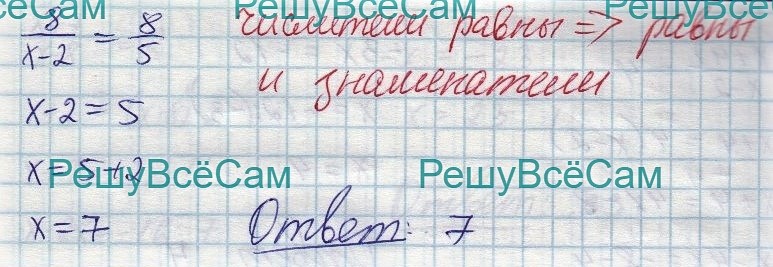 РешуВсёСам РешуВсёСам
8/(x-2) = 8/5
числители равны => равны
и знаменатели
x-2=5
x=5+2
РешуВсёСам РешуВсёСам
x=7
Ответ: 7